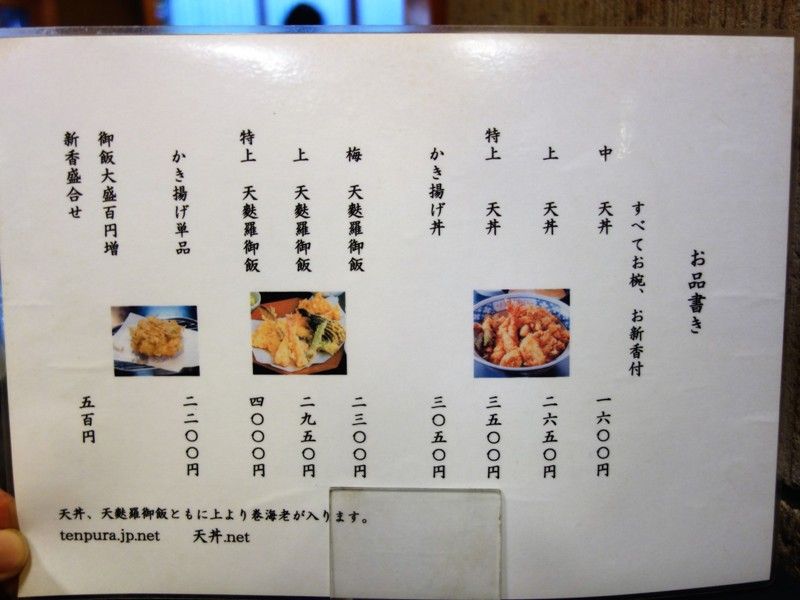 お品書き
すべてお椀、お新香付
中 天丼 一六〇〇円
上 天丼 二六五〇円
特上 天丼 三五〇〇円
かき揚げ丼 三〇五〇円
梅 天麩羅御飯 二三〇〇円
上 天麩羅御飯 二九五〇円
特上 天麩羅御飯 四〇〇〇円
かき揚げ単品 二二〇〇円
御飯大盛百円増
新香盛合せ 五百円
天丼、天麩羅御飯ともに上より巻海老が入ります。
tenpura.jp.net 天丼.net